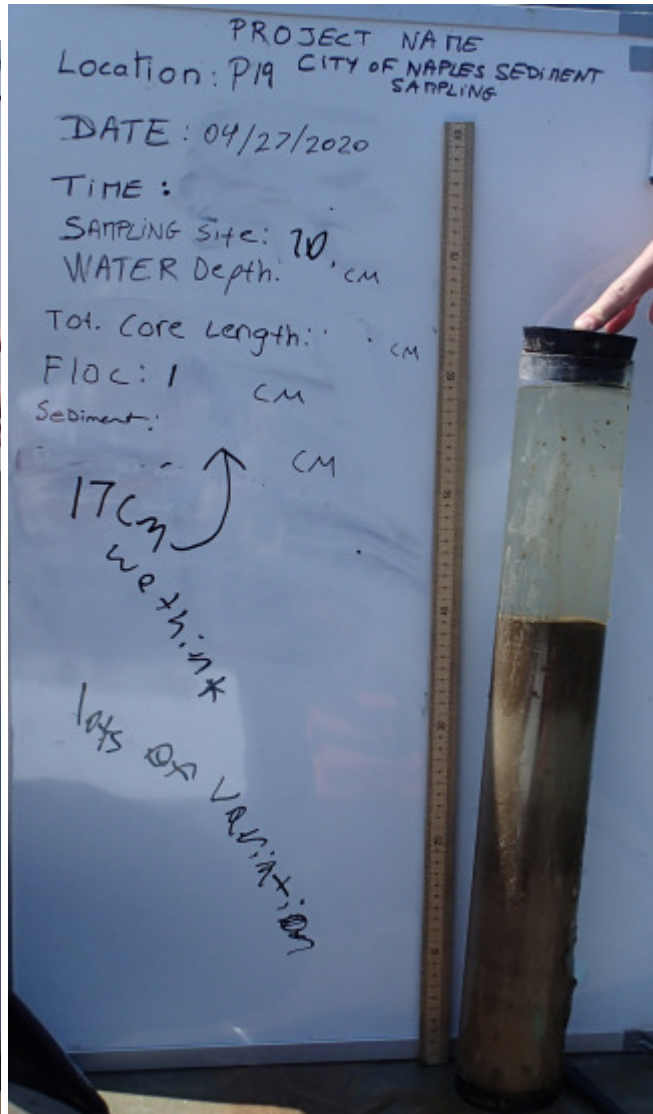 PROJECT NAME
Location: P19 CITY OF NAPLES SEDIMENT
SAMPLING
DATE: 04/27/2020
TIME:
SAMPLING Site: 10
WATER Depth. CM
Tot. Core Length: CM
Floc: 1 CM
Sediment:
CM
17cm
we think
lots of variation